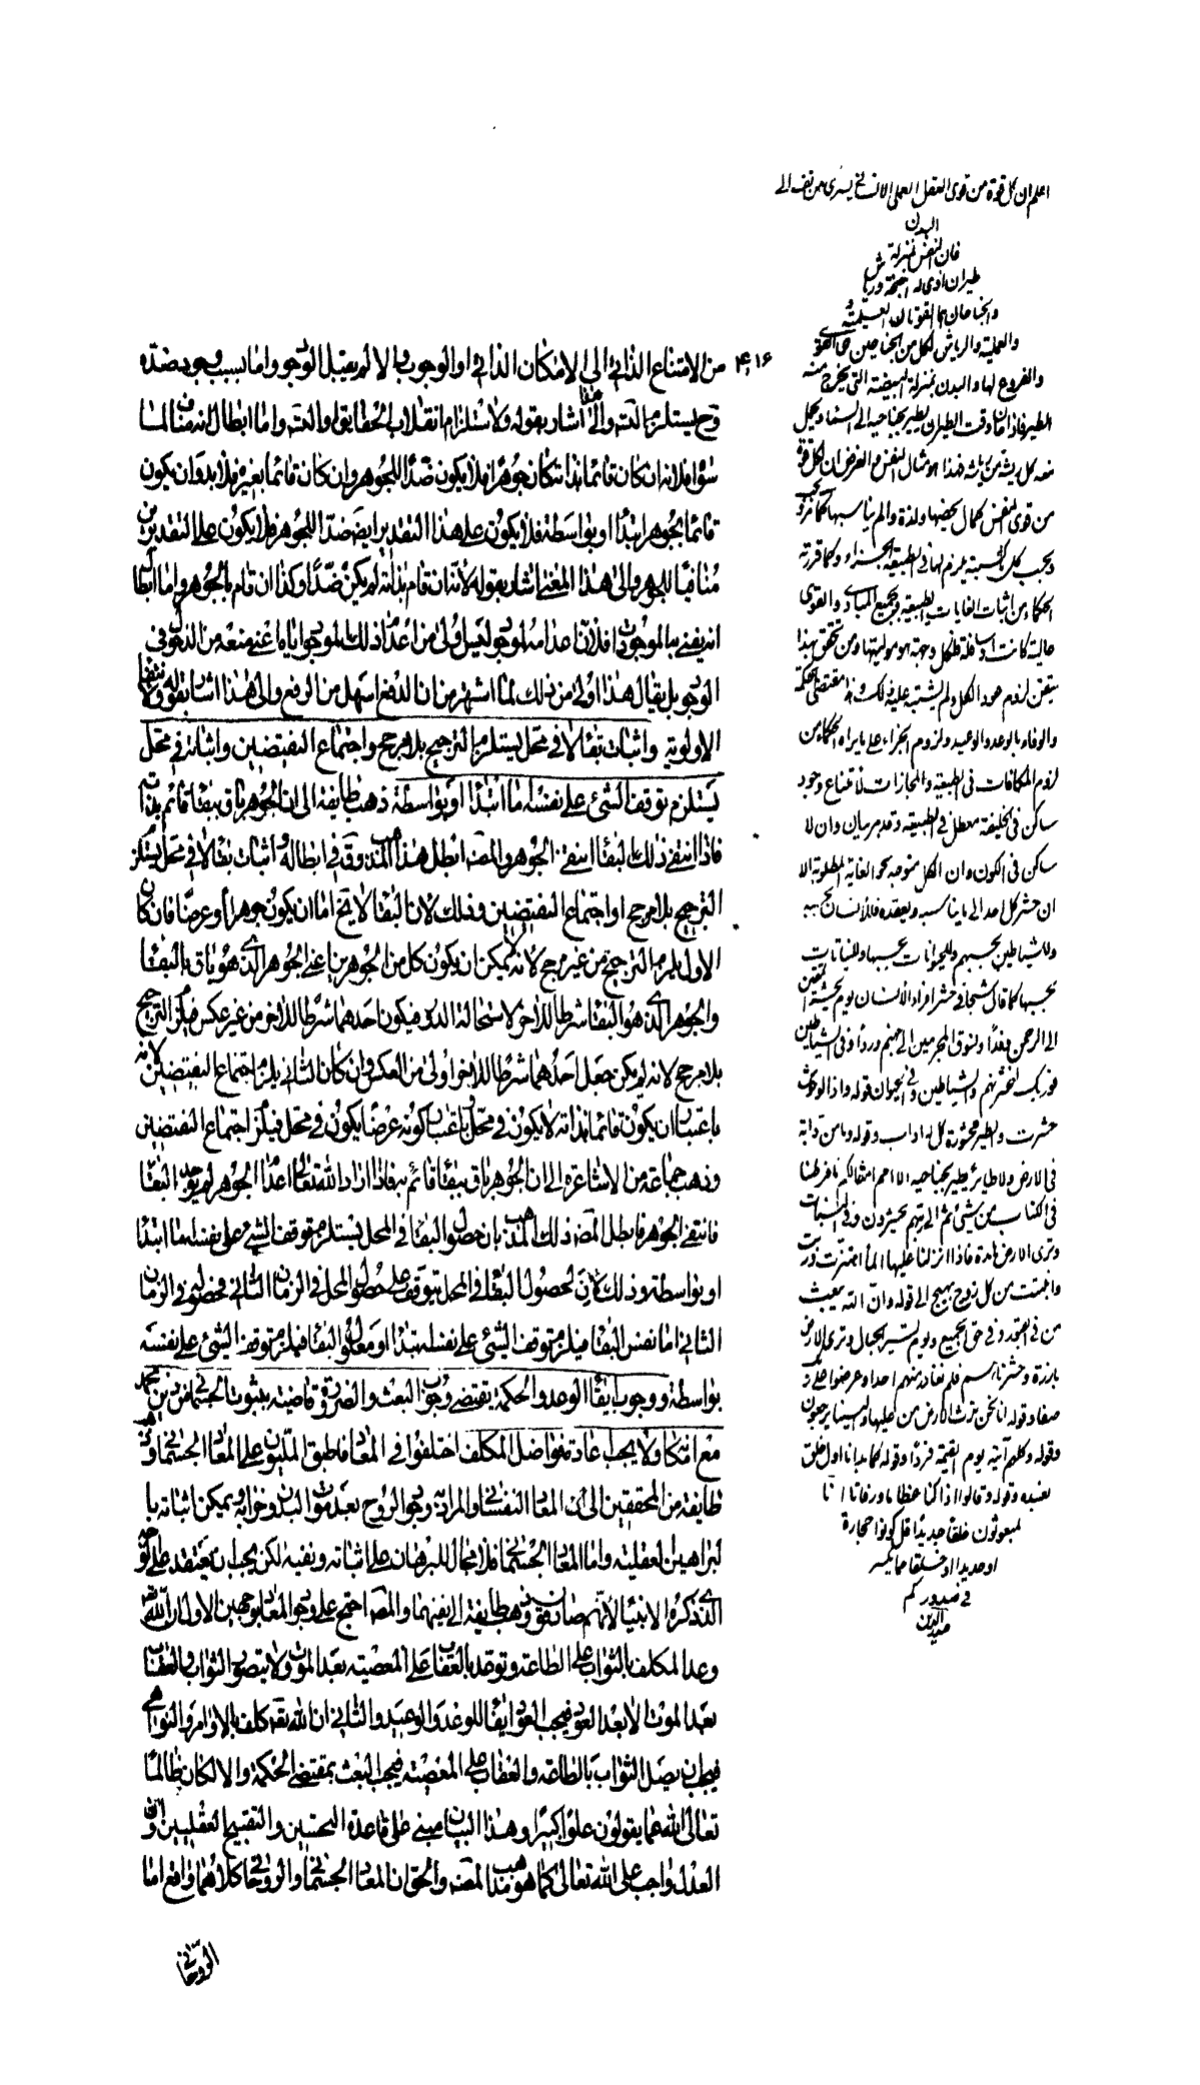 ٤١٦
من الامتناع الذاتى الى الامكان الذاتى او الوجوب والا لم يقبل الوجود واما بسبب وجود ضده
وح يستلزم والى هذا اشار بقوله ولاستلزام انقلاب الحقايق او التسلسل واما ابطال انه
سواه فلانه ان كان قائما بذاته كان جوهرا فلا يكون ضدا للجوهر وان كان قائما بغيره فلا بد وان يكون
قائما بجوهر ابتداء او بواسطة فلا يكون على هذا التقدير ايضا ضدا للجوهر فلا يكون على التقديرين
منافيا للجوهر والى هذا المعنى اشار بقوله لانه ان قام بذاته لم يكن ضدا وكذا ان قام بالجوهر واما ابطال
انه يفنى بالموجود فلان اعدامه لوجود ليس اولى من اعدام ذلك الموجود اياه اعنى منعه من الدخول فى
الوجود بل يقال هذا اولى من ذلك لما اشتهر من ان الدفع اسهل من الرفع والى هذا اشار بقوله ولانتفاء
الاولوية واثبات بقاء لا فى محل يستلزم الترجيح بلا مرجح واجتماع النقيضين واثباته فى محل
يستلزم توقف الشئ على نفسه اما ابتداء او بواسطة ذهب طايفة الى ان الجوهر باق ببقاء قائم بذاته
فاذا انتفى ذلك البقاء انتفى الجوهر والمصنف ابطل هذا المذهب فى ابطاله اثبات بقاء لا فى محل يستلزم
الترجيح بلا مرجح او اجتماع النقيضين وذلك لان البقاء لا يخ اما ان يكون جوهرا او عرضا فان كان
الاول يلزم الترجيح من غير مرجح لانه لا يمكن ان يكون كل من الجوهرين اعنى الجوهر الذى هو باق بالبقاء
والجوهر الذى هو البقاء شرطا للاخر لاستحالة الدور فيكون احدهما شرطا للاخر من غير عكس فيلزم الترجيح
بلا مرجح لانه لم يكن جعل احدهما شرطا للاخر اولى من العكس وان كان الثانى يلزم اجتماع النقيضين لانه
باعتبار ان يكون قائما بذاته لا يكون فى محل وباعتبار كونه عرضا يكون فى محل فيلزم اجتماع النقيضين
وذهب جماعة من الاشاعرة الى ان الجوهر باق ببقاء قائم به فاذا اراد الله تعالى اعدام الجوهر لم يوجد البقاء
فانتفى الجوهر فابطل المصنف ذلك المذهب بان حصول البقاء فى المحل يستلزم توقف الشئ على نفسه اما ابتداء
او بواسطة وذلك لان حصول البقاء فى المحل يتوقف على حصول المحل فى الزمان الثانى فحصوله فى الزمان
الثانى اما نفس البقاء فيلزم توقف الشئ على نفسه ابتداء او معلول البقاء فيلزم توقف الشئ على نفسه
بواسطة ووجوب ايفاء الوعد والحكمة يقتضى وجوب البعث والضرورة قاضية بثبوت الجسمانى من دين محمد
مع امكانه ولا يجب اعادة فواضل المكلف اختلفوا فى المعاد فاطبق المليون على المعاد الجسمانى
طايفة من المحققين الى ان المعاد النفسانى والمراد به وجود الروح بعد موت البدن وخرابه يمكن اثباته با
لبراهين العقلية واما المعاد الجسمانى فلا مجال للبرهان على اثباته ونفيه لكن يجب ان يعتقد على الوجه
الذى ذكره الانبياء لانهم صادقون وذهب طايفة الى نفيهما والمصنف احتج على وجود المعاد بوجهين الاول ان الله
وعد المكلف بالثواب على الطاعة وتوعد بالعقاب على المعصية بعد الموت ولا يتصور الثواب والعقاب
بعد الموت الا بعد العود فيجب العود ايفاء للوعد والوعيد والثانى ان الله تعه كلف بالاوامر والنواهى
فيجب ان يصل الثواب بالطاعة والعقاب على المعصية فيجب البعث بمقتضى الحكمة والا لكان ظالما
تعالى الله عما يقولون علوا كبيرا وهذا البيان مبنى على قاعدة التحسين والتقبيح العقليين وان
العدل واجب على الله تعالى كما هو مذهب المصنف والحق ان المعاد الجسمانى والروحانى كلاهما واقع اما
الروحانى
اعلم ان كل قوة من قوى العقل العملى الانسانى يسرى من نفسه الى
البدن
فان النفس بمنزلة
طيران ذى اجنحة
والجناحان هما القوتان العلمية
والعملية والرياش لكل من الجناحين هى القوى
والفروع لها والبدن بمنزلة البيضة التى يخرج منه
الطير فاذا حان وقت الطيران يطير بجناحيه الى السماء ويحمل
معه كل ريشة من رياشه هذا هو مثال النفس والغرض ان لكل قوة
من قوى النفس كمال يخصها ولذة والم يناسبها كما مر
وبحسب كل يلزم لها فى الطبيعة الجزاء وكما قرره
الحكماء من اثبات الغايات الطبيعية لجميع المبادى والقوى
عالية كانت او سافلة فلكل وجهة هو موليها ومن تحقق بهذا
تيقن لزوم عود الكل ولم يشتبه عليه ذلك وهذا مقتضى الحكمة
والوفاء بالوعد والوعيد ولزوم الجزاء على ما يراه الحكماء من
لزوم المكافات فى الطبيعة والمجازات لامتناع وجود
ساكن فى الخليقة معطل فى الطبيعة وقد مر بيان وان لا
ساكن فى الكون وان الكل متوجه نحو الغاية المطلوبة الا
ان حشر كل احد الى ما يناسبه ويقصده فللانسان بحسبه
وللشياطين بحسبهم وللحيوانات بحسبها وللنباتات
بحسبها كما قال سبحانه فى حشر افراد الانسان يوم نحشر المتقين
الى الرحمن وفدا ونسوق المجرمين الى جهنم وردا وفى الشياطين
فوربك لنحشرنهم والشياطين وفى الحيوان قوله واذا الوحوش
حشرت والطير محشورة كل له اواب وقوله وما من دابة
فى الارض ولا طائر يطير بجناحيه الا امم امثالكم ما فرطنا
فى الكتاب من شئ ثم الى ربهم يحشرون وفى النبات
وترى الارض هامدة فاذا انزلنا عليها الماء اهتزت وربت
وانبتت من كل زوج بهيج الى قوله وان الله يبعث
من فى القبور وفى حق الجميع ويوم نسير الجبال وترى الارض
بارزة وحشرناهم فلم نغادر منهم احدا وعرضوا على ربك
صفا وقوله انا نحن نرث الارض ومن عليها والينا يرجعون
وقوله وكلهم آتيه يوم القيمة فردا وقوله كما بدانا اول خلق
نعيده وقوله وقالوا ءاذا كنا عظاما ورفاتا ءانا
لمبعوثون خلقا جديدا قل كونوا حجارة
او حديدا او خلقا مما يكبر
فى صدوركم
صدر الدين